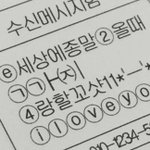 수신메시지함
ⓔ세상에종말②올때
㉠㉠ㅏ(지)
④랑할꼬샷1*'ㅡ'*
ⓘⓛⓞⓥⓔⓨⓞ
010-1234-5